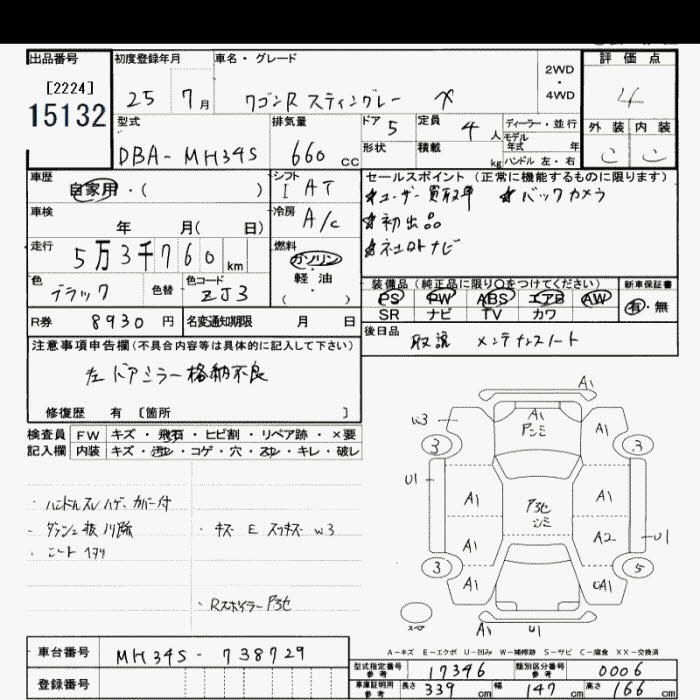 出品番号
[2224]
15132
初度登録年月
25 7月
車名・グレード
ワゴンR スティングレー X
2WD
・
4WD
評価点
4
外装 内装
こ こ
型式
DBA-MH34S
排気量
660 cc
ドア 5
定員 4 人
ディーラー・並行
モデル
年式 年
形状
積載 kg
ハンドル 左・右
車歴
自家用・( )
シフト
I AT
セールスポイント(正常に機能するものに限ります)
★ユーザー買取車 ★バックカメラ
★初出品
★社外ナビ
車検
年 月( 日)
冷房
A/c
走行
5万3千760km
燃料
ガソリン
・
軽油
( )
色
ブラック
色替
色コード
ZJ3
装備品(純正品に限り○をつけてください)
新車保証書
PS PW ABS エアB AW
有・無
SR ナビ TV カワ
R券 8930円
名変通知期限 月 日
後日品
取説 メンテナンスノート
注意事項申告欄(不具合内容等は具体的に記入して下さい)
左ドアミラー格納不良
修復歴 有 〔箇所 〕
検査員
記入欄
FW キズ・飛石・ヒビ割・リペア跡・×要
内装 キズ・汚レ・コゲ・穴・スレ・キレ・破レ
・ハンドルスレハゲ、カバー付
・ダッシュ板 汚れ跡
・シート
・キズ E スリキズ W3
・Rスポイラー アタセ
A1
W3 A1 A1
3 3
U1
A1 A1
A1 A2 U1
3 5
A1 A1
スペア
A1 U1
A-キズ E-エクボ U-凹み W-補修跡 S-サビ C-腐食 XX-交換済
車台番号 MH34S-738729
登録番号
型式指定番号
参考
17346
類別区分番号
参考
0006
車庫証明用
参考
長さ 339 cm 幅 147 cm 高さ 166 cm